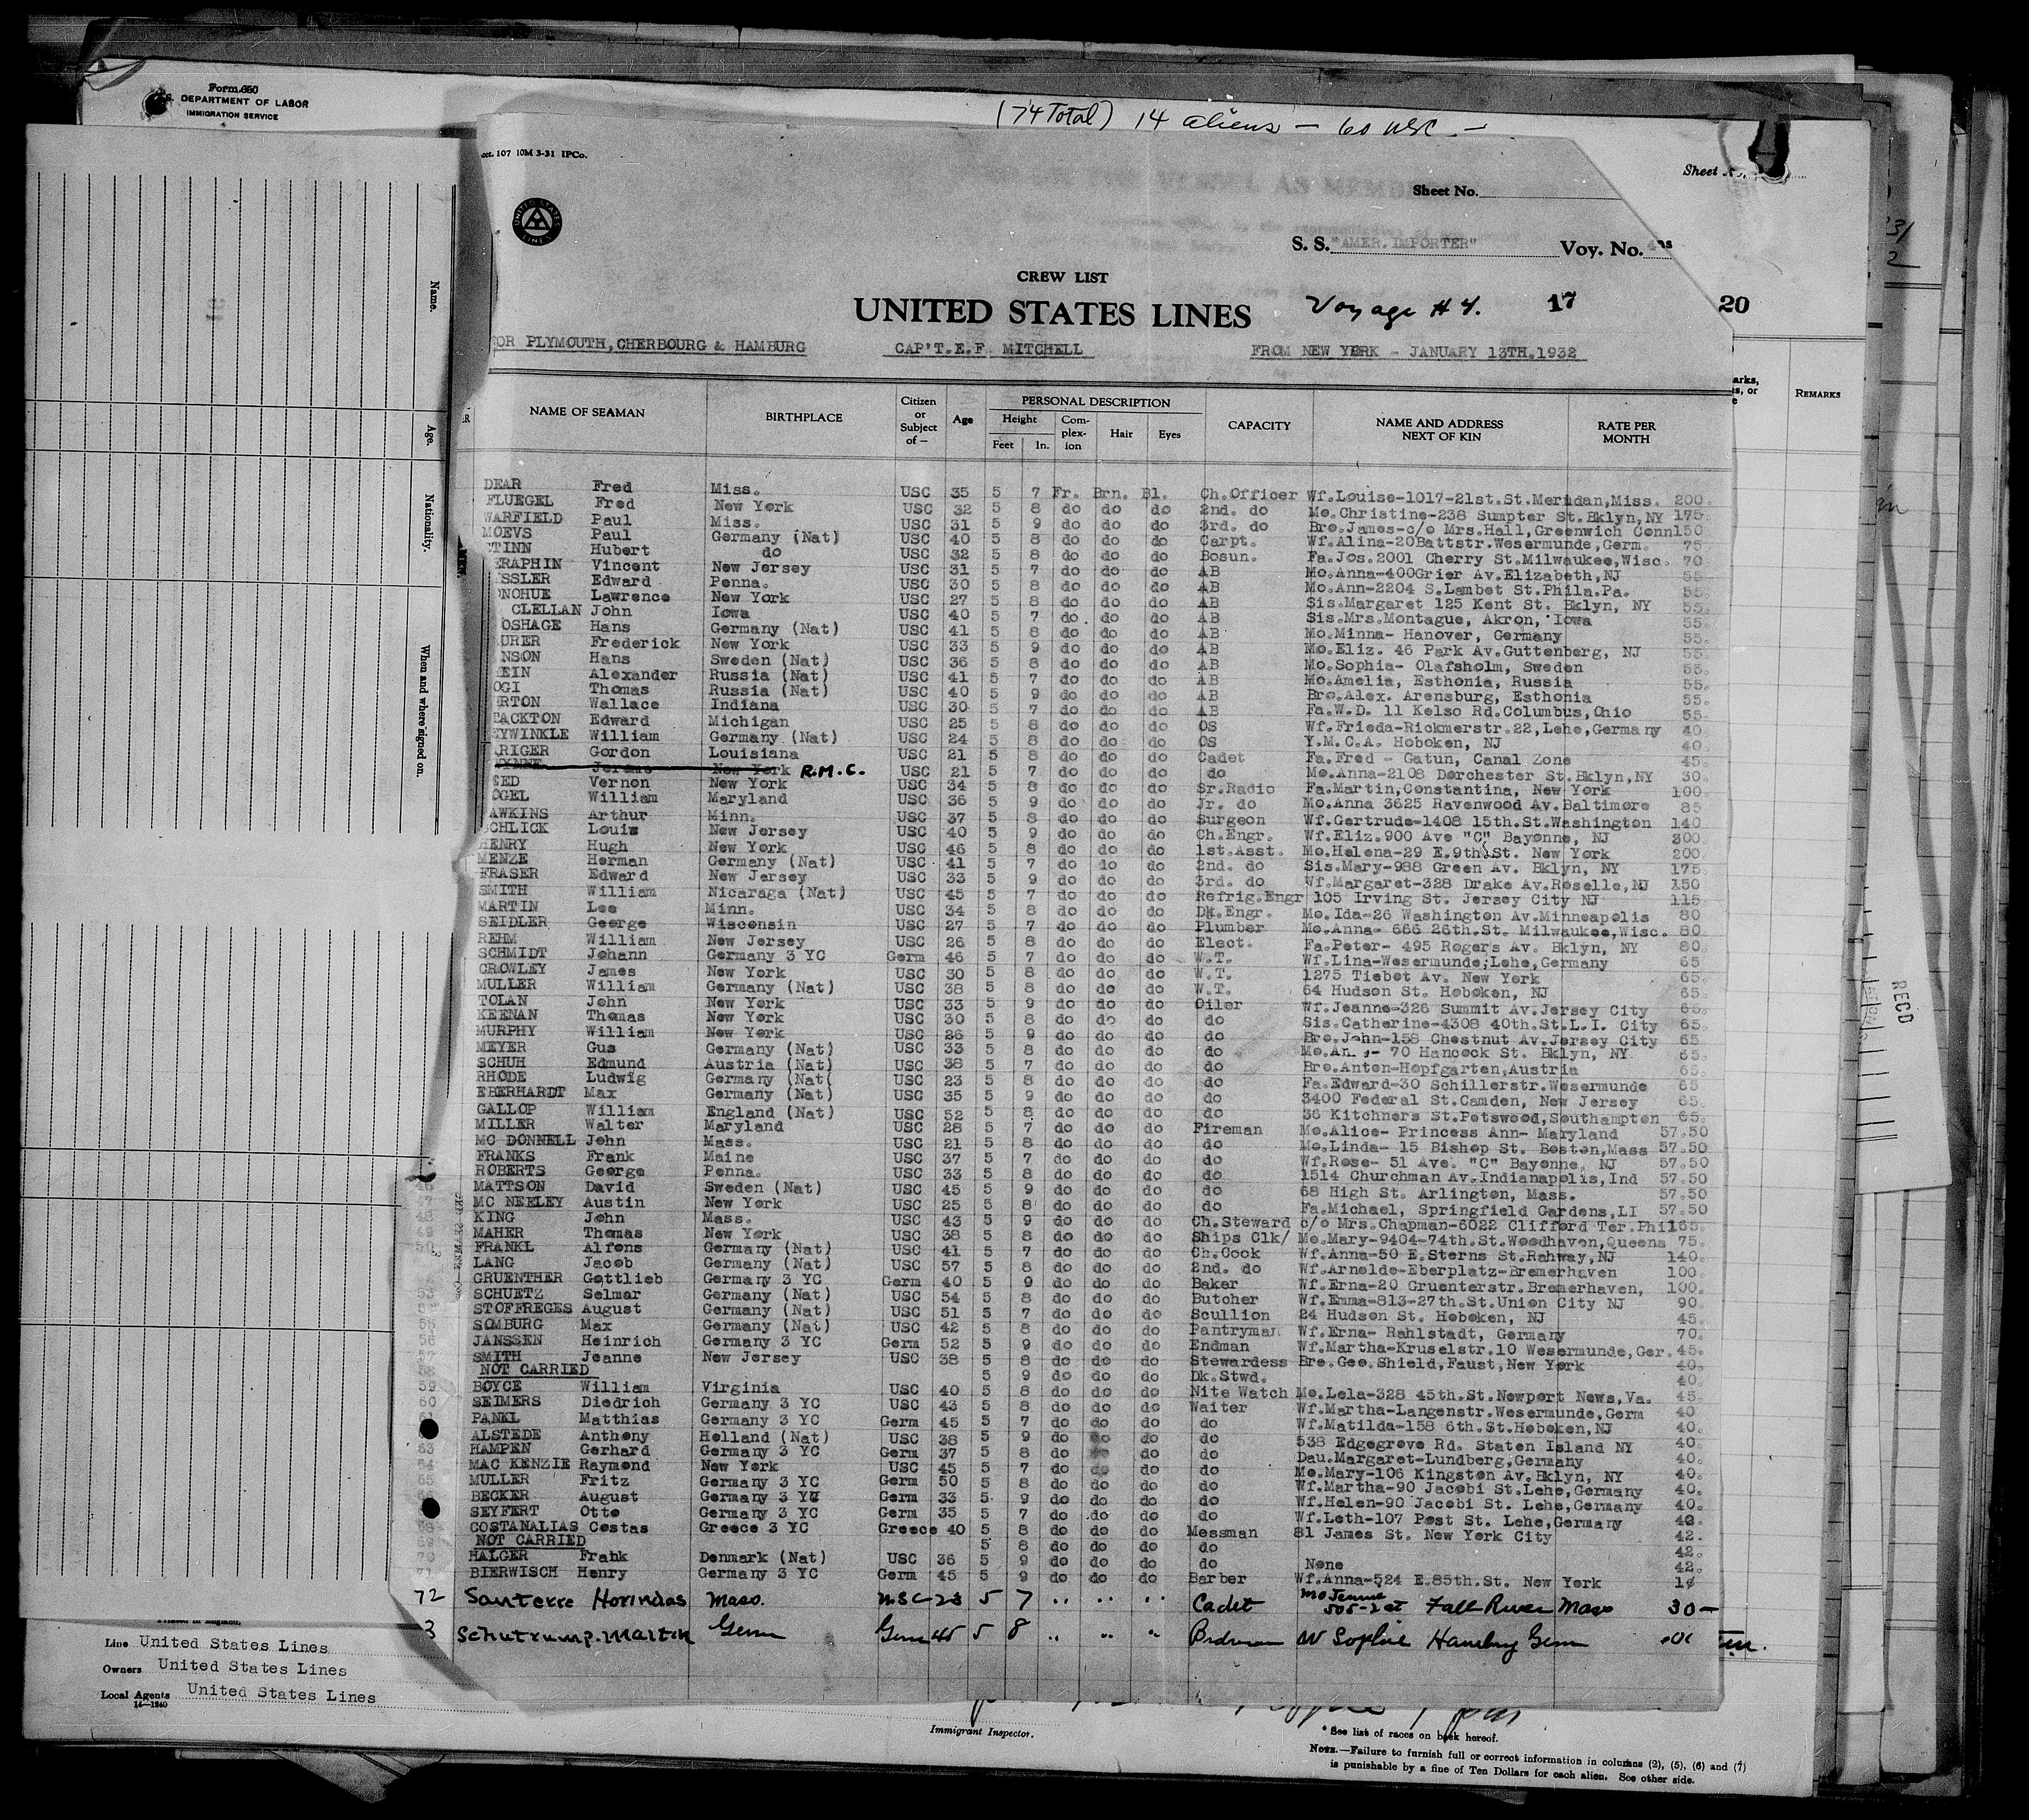 Form 650
DEPARTMENT OF LABOR
IMMIGRATION SERVICE
(74 Total) 14 aliens — 60 USC —
107 10M 3-31 IPCo.
Sheet No.
Sheet
UNITED STATES LINES
S. S. "AMER. IMPORTER" Voy. No.
CREW LIST
UNITED STATES LINES Voyage # 4. 17 20
OR PLYMOUTH, CHERBOURG & HAMBURG CAP'T.E.F. MITCHELL FROM NEW YORK - JANUARY 13TH.1932
NAME OF SEAMAN BIRTHPLACE Citizen or Subject of — Age PERSONAL DESCRIPTION Height Feet In. Complexion Hair Eyes CAPACITY NAME AND ADDRESS NEXT OF KIN RATE PER MONTH REMARKS
DEAR Fred Miss. USC 35 5 7 Fr. Brn. Bl. Ch.Officer Wf.Louise-1017-21st.St.Meridan,Miss. 200.
FLUEGEL Fred New York USC 32 5 8 do do do 2nd. do Mo.Christine-238 Sumpter St.Bklyn,NY 175.
WARFIELD Paul Miss. USC 31 5 9 do do do 3rd. do Bro.James-c/o Mrs.Hall,Greenwich Conn150
MOEVS Paul Germany (Nat) USC 40 5 8 do do do Carpt. Wf.Alina-20Battstr.Wesermunde,Germ. 75.
TINN Hubert do USC 32 5 8 do do do Bosun. Fa.Jos.2001 Cherry St.Milwaukee,Wisc. 70
ERAPHIN Vincent New Jersey USC 31 5 7 do do do AB Mo.Anna-400Grier Av.Elizabeth,NJ 55.
SSLER Edward Penna. USC 30 5 8 do do do AB Mo.Ann-2204 S.Lambet St.Phila.Pa. 55.
ONOHUE Lawrence New York USC 27 5 8 do do do AB Sis.Margaret 125 Kent St. Bklyn, NY 55.
CLELLAN John Iowa USC 40 5 7 do do do AB Sis.Mrs.Montague, Akron, Iowa 55.
OSHAGE Hans Germany (Nat) USC 41 5 8 do do do AB Mo.Minna- Hanover, Germany 55.
URER Frederick New York USC 33 5 9 do do do AB Mo.Eliz. 46 Park Av.Guttenberg, NJ 55.
NSON Hans Sweden (Nat) USC 36 5 8 do do do AB Mo.Sophia- Olafsholm, Sweden 55.
EIN Alexander Russia (Nat) USC 41 5 7 do do do AB Mo.Amelia, Esthonia, Russia 55.
OGI Thomas Russia (Nat) USC 40 5 9 do do do AB Bro.Alex. Arensburg, Esthonia 55.
RTON Wallace Indiana USC 30 5 7 do do do AB Fa.W.D. 11 Kelso Rd.Columbus,Ohio 55.
TACKTON Edward Michigan USC 25 5 8 do do do OS Wf.Frieda-Rickmerstr.22,Lehe,Germany 40.
EYWINKLE William Germany (Nat) USC 24 5 8 do do do OS Y.M.C.A. Hoboken, NJ 40.
RIGER Gordon Louisiana USC 21 5 8 do do do Cadet Fa.Fred - Gatun, Canal Zone 45.
WYNNE Jerome New York R.M.C. USC 21 5 7 do do do do Mo.Anna-2108 Dorchester St.Bklyn,NY 30.
EED Vernon New York USC 34 5 8 do do do Sr.Radio Fa.Martin,Constantina, New York 100.
OGEL William Maryland USC 36 5 9 do do do Jr. do Mo.Anna 3625 Ravenwood Av.Baltimore 85
AWKINS Arthur Minn. USC 37 5 8 do do do Surgeon Wf.Gertrude-1408 15th.St.Washington 140
CHLICK Louis New Jersey USC 40 5 9 do do do Ch.Engr. Wf.Eliz.900 Ave "C" Bayonne, NJ 300.
HENRY Hugh New York USC 46 5 8 do do do 1st.Asst. Mo.Helena-29 E.9th.St. New York 200.
MENZE Herman Germany (Nat) USC 41 5 7 do do do 2nd. do Sis.Mary-988 Green Av. Bklyn, NY 175.
FRASER Edward New Jersey USC 33 5 9 do do do 3rd. do Wf.Margaret-328 Drake Av.Roselle,NJ 150
SMITH William Nicaraga (Nat) USC 45 5 7 do do do Refrig.Engr 105 Irving St. Jersey City NJ 115.
MARTIN Lee Minn. USC 34 5 8 do do do Dk.Engr. Mo.Ida-26 Washington Av.Minneapolis 80
SEIDLER George Wisconsin USC 27 5 7 do do do Plumber Mo.Anna- 666 26th.St. Milwaukee,Wisc. 80.
REHM William New Jersey USC 26 5 8 do do do Elect. Fa.Peter- 495 Rogers Av. Bklyn, NY 80.
SCHMIDT Johann Germany 3 YC Germ 46 5 7 do do do W.T. Wf.Lina-Wesermunde,Lehe,Germany 65
CROWLEY James New York USC 30 5 8 do do do W.T. 1275 Tiebot Av. New York 65.
MULLER William Germany (Nat) USC 38 5 8 do do do W.T. 64 Hudson St. Hoboken, NJ 65.
TOLAN John New York USC 33 5 9 do do do Oiler Wf.Jeanne-326 Summit Av.Jersey City 65.
KEENAN Thomas New York USC 30 5 8 do do do do Sis.Catherine-4308 40th.St.L.I. City 65.
MURPHY William New York USC 26 5 9 do do do do Bro.John-158 Chestnut Av.Jersey City 65
MEYER Gus Germany (Nat) USC 33 5 8 do do do do 70 Hancock St. Bklyn, NY 65.
SCHUH Edmund Austria (Nat) USC 38 5 7 do do do do Bro.Anton-Hopfgarten,Austria 65.
RHODE Ludwig Germany (Nat( USC 23 5 8 do do do do Fa.Edward-30 Schillerstr.Wesermunde 65
EBERHARDT Max Germany (Nat) USC 35 5 9 do do do do 3400 Federal St.Camden, New Jersey 65.
GALLOP William England (Nat) USC 52 5 8 do do do do 36 Kitchners St.Potswood,Southampton 65.
MILLER Walter Maryland USC 28 5 7 do do do Fireman Mo.Alice- Princess Ann- Maryland 57.50
MC DONNELL John Mass. USC 21 5 8 do do do do Mo.Linda- 15 Bishop St. Boston,Mass 57.50
FRANKS Frank Maine USC 37 5 7 do do do do Wf.Rose- 51 Ave. "C" Bayonne, NJ 57.50
ROBERTS George Penna. USC 33 5 8 do do do do 1514 Churchman Av.Indianapolis,Ind 57.50
MATTSON David Sweden (Nat) USC 45 5 9 do do do do 68 High St. Arlington, Mass. 57.50
MC NEELEY Austin New York USC 25 5 8 do do do do Fa.Michael, Springfield Gardens,LI 57.50
48 KING John Mass. USC 43 5 9 do do do Ch.Steward c/o Mrs.Chapman-6022 Clifford Ter.Phil165.
49 MAHER Thomas New York USC 38 5 8 do do do Ships Clk/ Mo.Mary-9404-74th.St.Woodhaven,Queens 75.
50 FRANKL Alfons Germany (Nat) USC 41 5 7 do do do Ch.Cook Wf.Anna-50 E.Sterns St.Rahway,NJ 140.
LANG Jacob Germany (Nat) USC 57 5 8 do do do 2nd. do Wf.Arnolde-Eberplatz-Bremerhaven 100.
GRUENTHER Gottlieb Germany 3 YC Germ 40 5 9 do do do Baker Wf.Erna-20 Gruenterstr.Bremerhaven, 100.
53 SCHUETZ Selmar Germany (Nat) USC 54 5 8 do do do Butcher Wf.Emma-813-27th.St.Union City NJ 90.
STOFFREGES August Germany (Nat) USC 51 5 7 do do do Scullion 24 Hudson St. Hoboken, NJ 45.
55 SOMBURG Max Germany (Nat) USC 42 5 8 do do do Pantryman Wf.Erna- Rahlstadt, Germany 70.
56 JANSSEN Heinrich Germany 3 YC Germ 52 5 9 do do do Endman Wf.Martha-Kruselstr.10 Wesermunde,Ger. 45.
SMITH Jeanne New Jersey USC 38 5 8 do do do Stewardess Bro.Geo.Shield,Faust,New York 40.
58 NOT CARRIED 5 9 do do do Dk.Stwd. 40.
59 BOYCE William Virginia USC 40 5 8 do do do Nite Watch Mo.Lela-328 45th.St.Newport News,Va. 45.
60 SEIMERS Diedrich Germany 3 YC USC 43 5 8 do do do Waiter Wf.Martha-Langenstr.Wesermunde,Germ 40
61 PANKL Matthias Germany 3 YC Germ 45 5 7 do do do do Wf.Matilda-158 6th.St.Hoboken,NJ 40.
ALSTEDE Anthony Holland (Nat) USC 38 5 9 do do do do 538 Edgegrove Rd. Staten Island NY 40.
63 HAMPEN Gerhard Germany 3 YC Germ 37 5 8 do do do do Dau.Margaret-Lundberg,Germany 40.
64 MAC KENZIE Raymond New York USC 45 5 7 do do do do Mo.Mary-106 Kingston Av.Bklyn, NY 40.
65 MULLER Fritz Germany 3 YC Germ 50 5 8 do do do do Wf.Martha-90 Jacobi St.Lehe,Germany 40.
BECKER August Germany 3 YC Germ 33 5 9 do do do do Wf.Helen-90 Jacobi St. Lehe,Germany 40.
SEYFERT Otto Germany 3 YC Germ 35 5 7 do do do do Wf.Leth-107 Post St. Lehe,Germany 40.
COSTANALIAS Costas Greece 3 YC Greece 40 5 8 do do do Messman 81 James St. New York City 42.
69 NOT CARRIED 5 8 do do do do 42.
70 HALGER Frank Denmark (Nat) USC 36 5 9 do do do do None 42.
71 BIERWISCH Henry Germany 3 YC Germ 45 5 9 do do do Barber Wf.Anna-524 E.85th.St. New York
72 Santerre Horindas Mass. USC 23 5 7 " " " Cadet Mo Jenne 505-2 st Fall River Mass 30 —
3 Schutrump. Martin Germ Germ 45 5 8 " " " W Sophie Hamburg Germ
Name.
Age.
Nationality.
When and where signed on.
RECD
Line United States Lines
Owners United States Lines
Local Agents United States Lines
14—1240
Immigrant Inspector.
* See list of races on back hereof.
NOTE.—Failure to furnish full or correct information in columns (2), (5), (6) and (7)
is punishable by a fine of Ten Dollars for each alien. See other side.